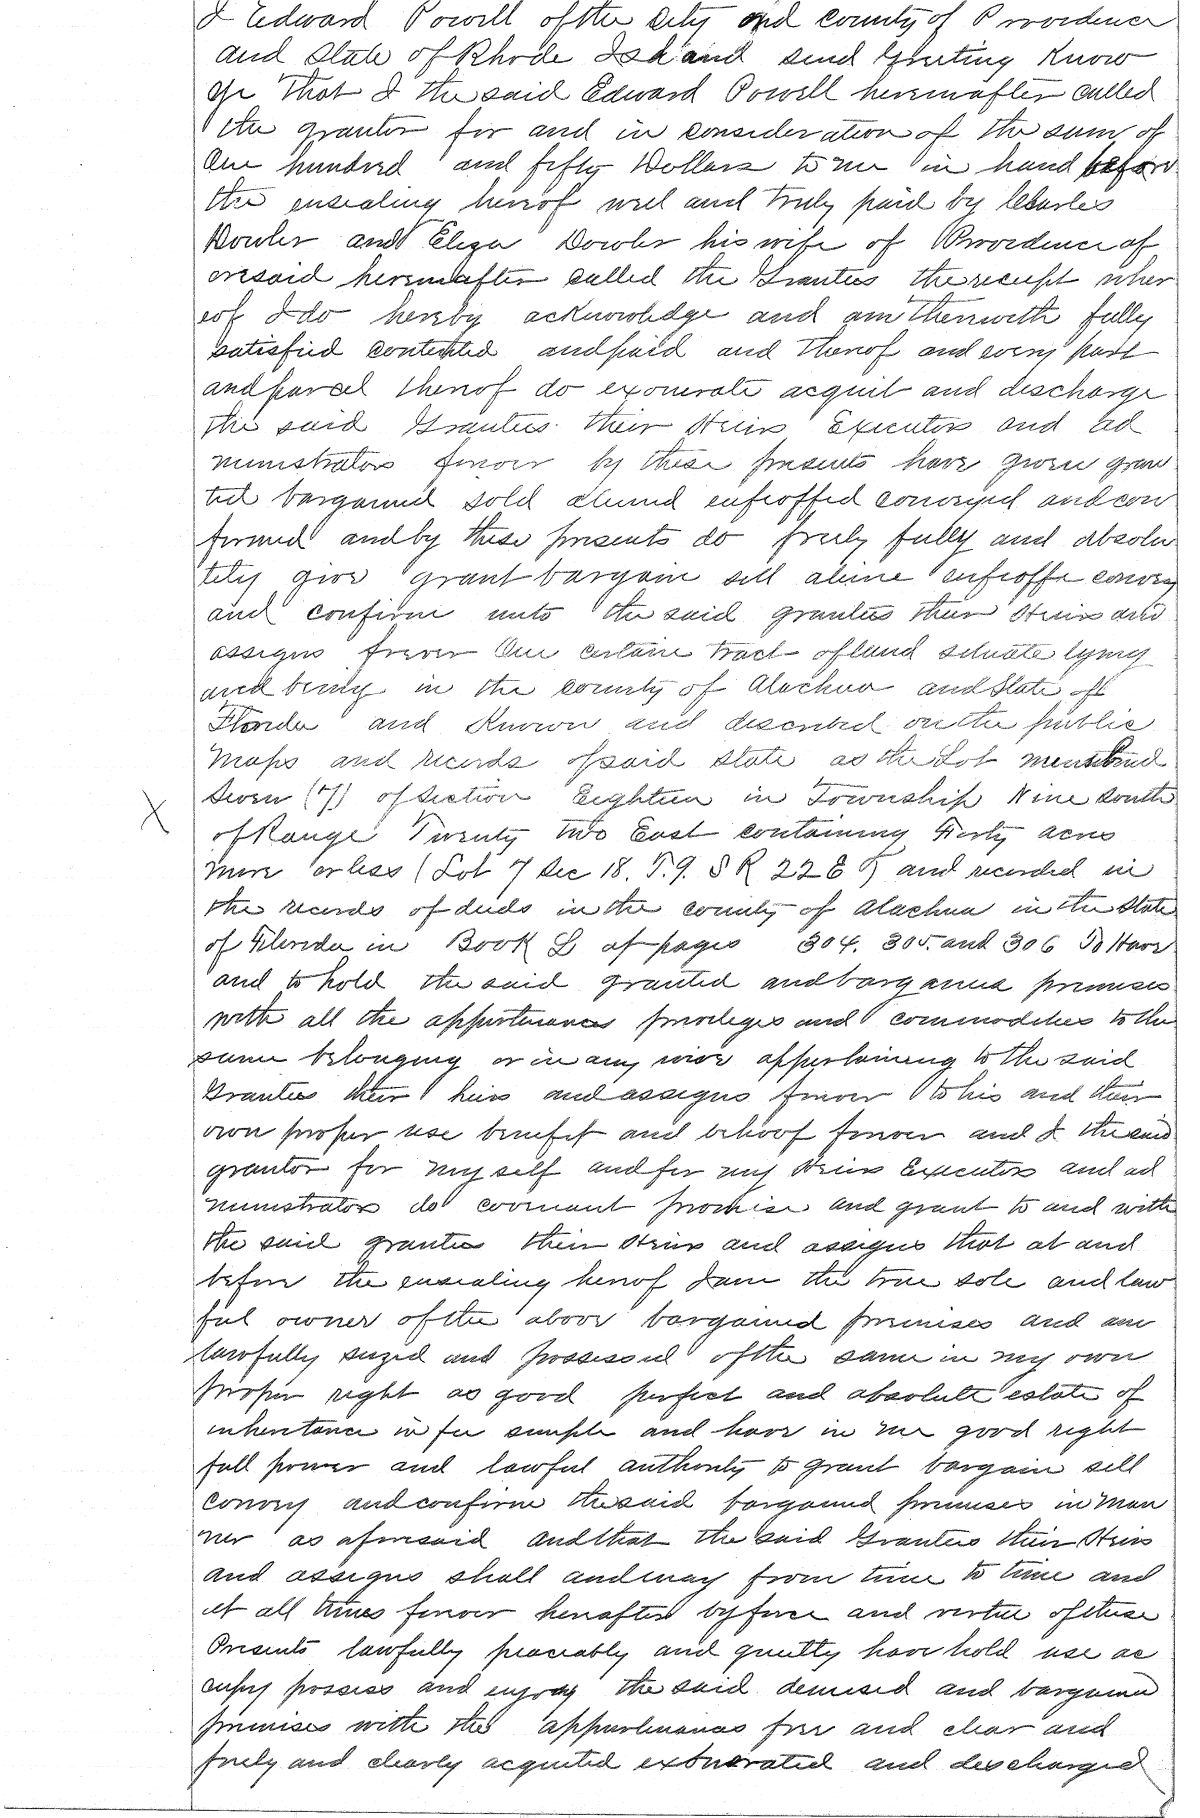 I Edward Powell of the City and County of Providence
and State of Rhode Island send Greeting Know
Ye That I the said Edward Powell hereinafter called
the grantor for and in consideration of the sum of
One hundred and fifty Dollars to me in hand before
the ensealing hereof well and truly paid by Charles
Dowler and Eliza Dowler his wife of Providence af
oresaid hereinafter called the Grantees the receipt wher
eof I do hereby acknowledge and am therewith fully
satisfied contented and paid and thereof and every part
and parcel thereof do exonerate acquit and discharge
the said Grantees their Heirs Executors and ad
ministrators forever by these presents have given gran
ted bargained sold aliened enfeoffed conveyed and con
firmed and by these presents do freely fully and absolu
tely give grant bargain sell aliene enfeoffe convey
and confirm unto the said grantees their Heirs and
assigns forever One certain tract of land situate lying
and being in the county of Alachua and State of
Florida and Known and described on the public
maps and records of said State as the Lot numbered
Seven (7) of Section Eighteen in Township Nine South
X of Range Twenty two East containing Forty acres
more or less (Lot 7 Sec 18. T.9. S R 22 E) and recorded in
the records of deeds in the county of Alachua in the State
of Florida in Book L at pages 304. 305. and 306 To Have
and to hold the said granted and bargained premises
with all the appurtenances privileges and commodities to the
same belonging or in any wise appertaining to the said
Grantees their heirs and assigns forever to his and their
own proper use benefit and behoof forever and I the said
grantor for myself and for my Heirs Executors and ad
ministrators do covenant promise and grant to and with
the said grantees their Heirs and assigns that at and
before the ensealing hereof I am the true sole and law
ful owner of the above bargained premises and am
lawfully seized and possessed of the same in my own
proper right as good perfect and absolute estate of
inheritance in fee simple and have in me good right
full power and lawful authority to grant bargain sell
convey and confirm the said bargained premises in man
ner as aforesaid and that the said Grantees their Heirs
and assigns shall and may from time to time and
at all times forever hereafter by force and virtue of these
Presents lawfully peaceably and quietly have hold use oc
cupy possess and enjoy the said demised and bargained
premises with the appurtenances free and clear and
freely and clearly acquitted exonerated and discharged